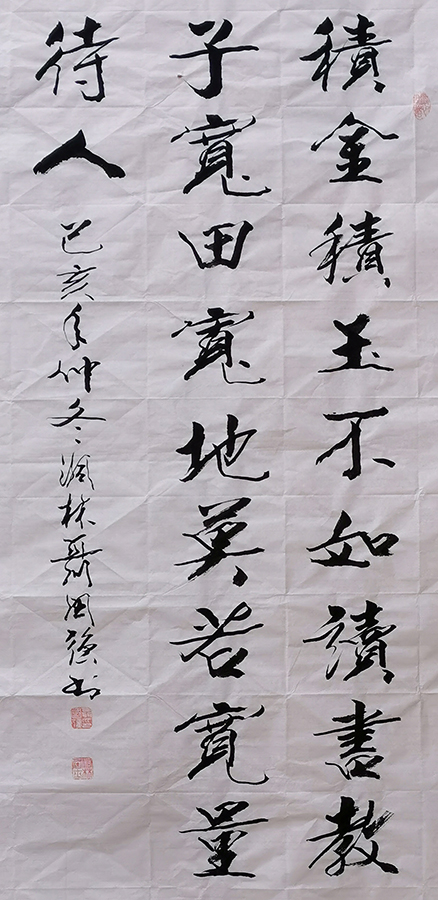 積金積玉不如讀書教
子寬田寬地莫若寬量
待人
己亥年仲冬澗林聶國強書